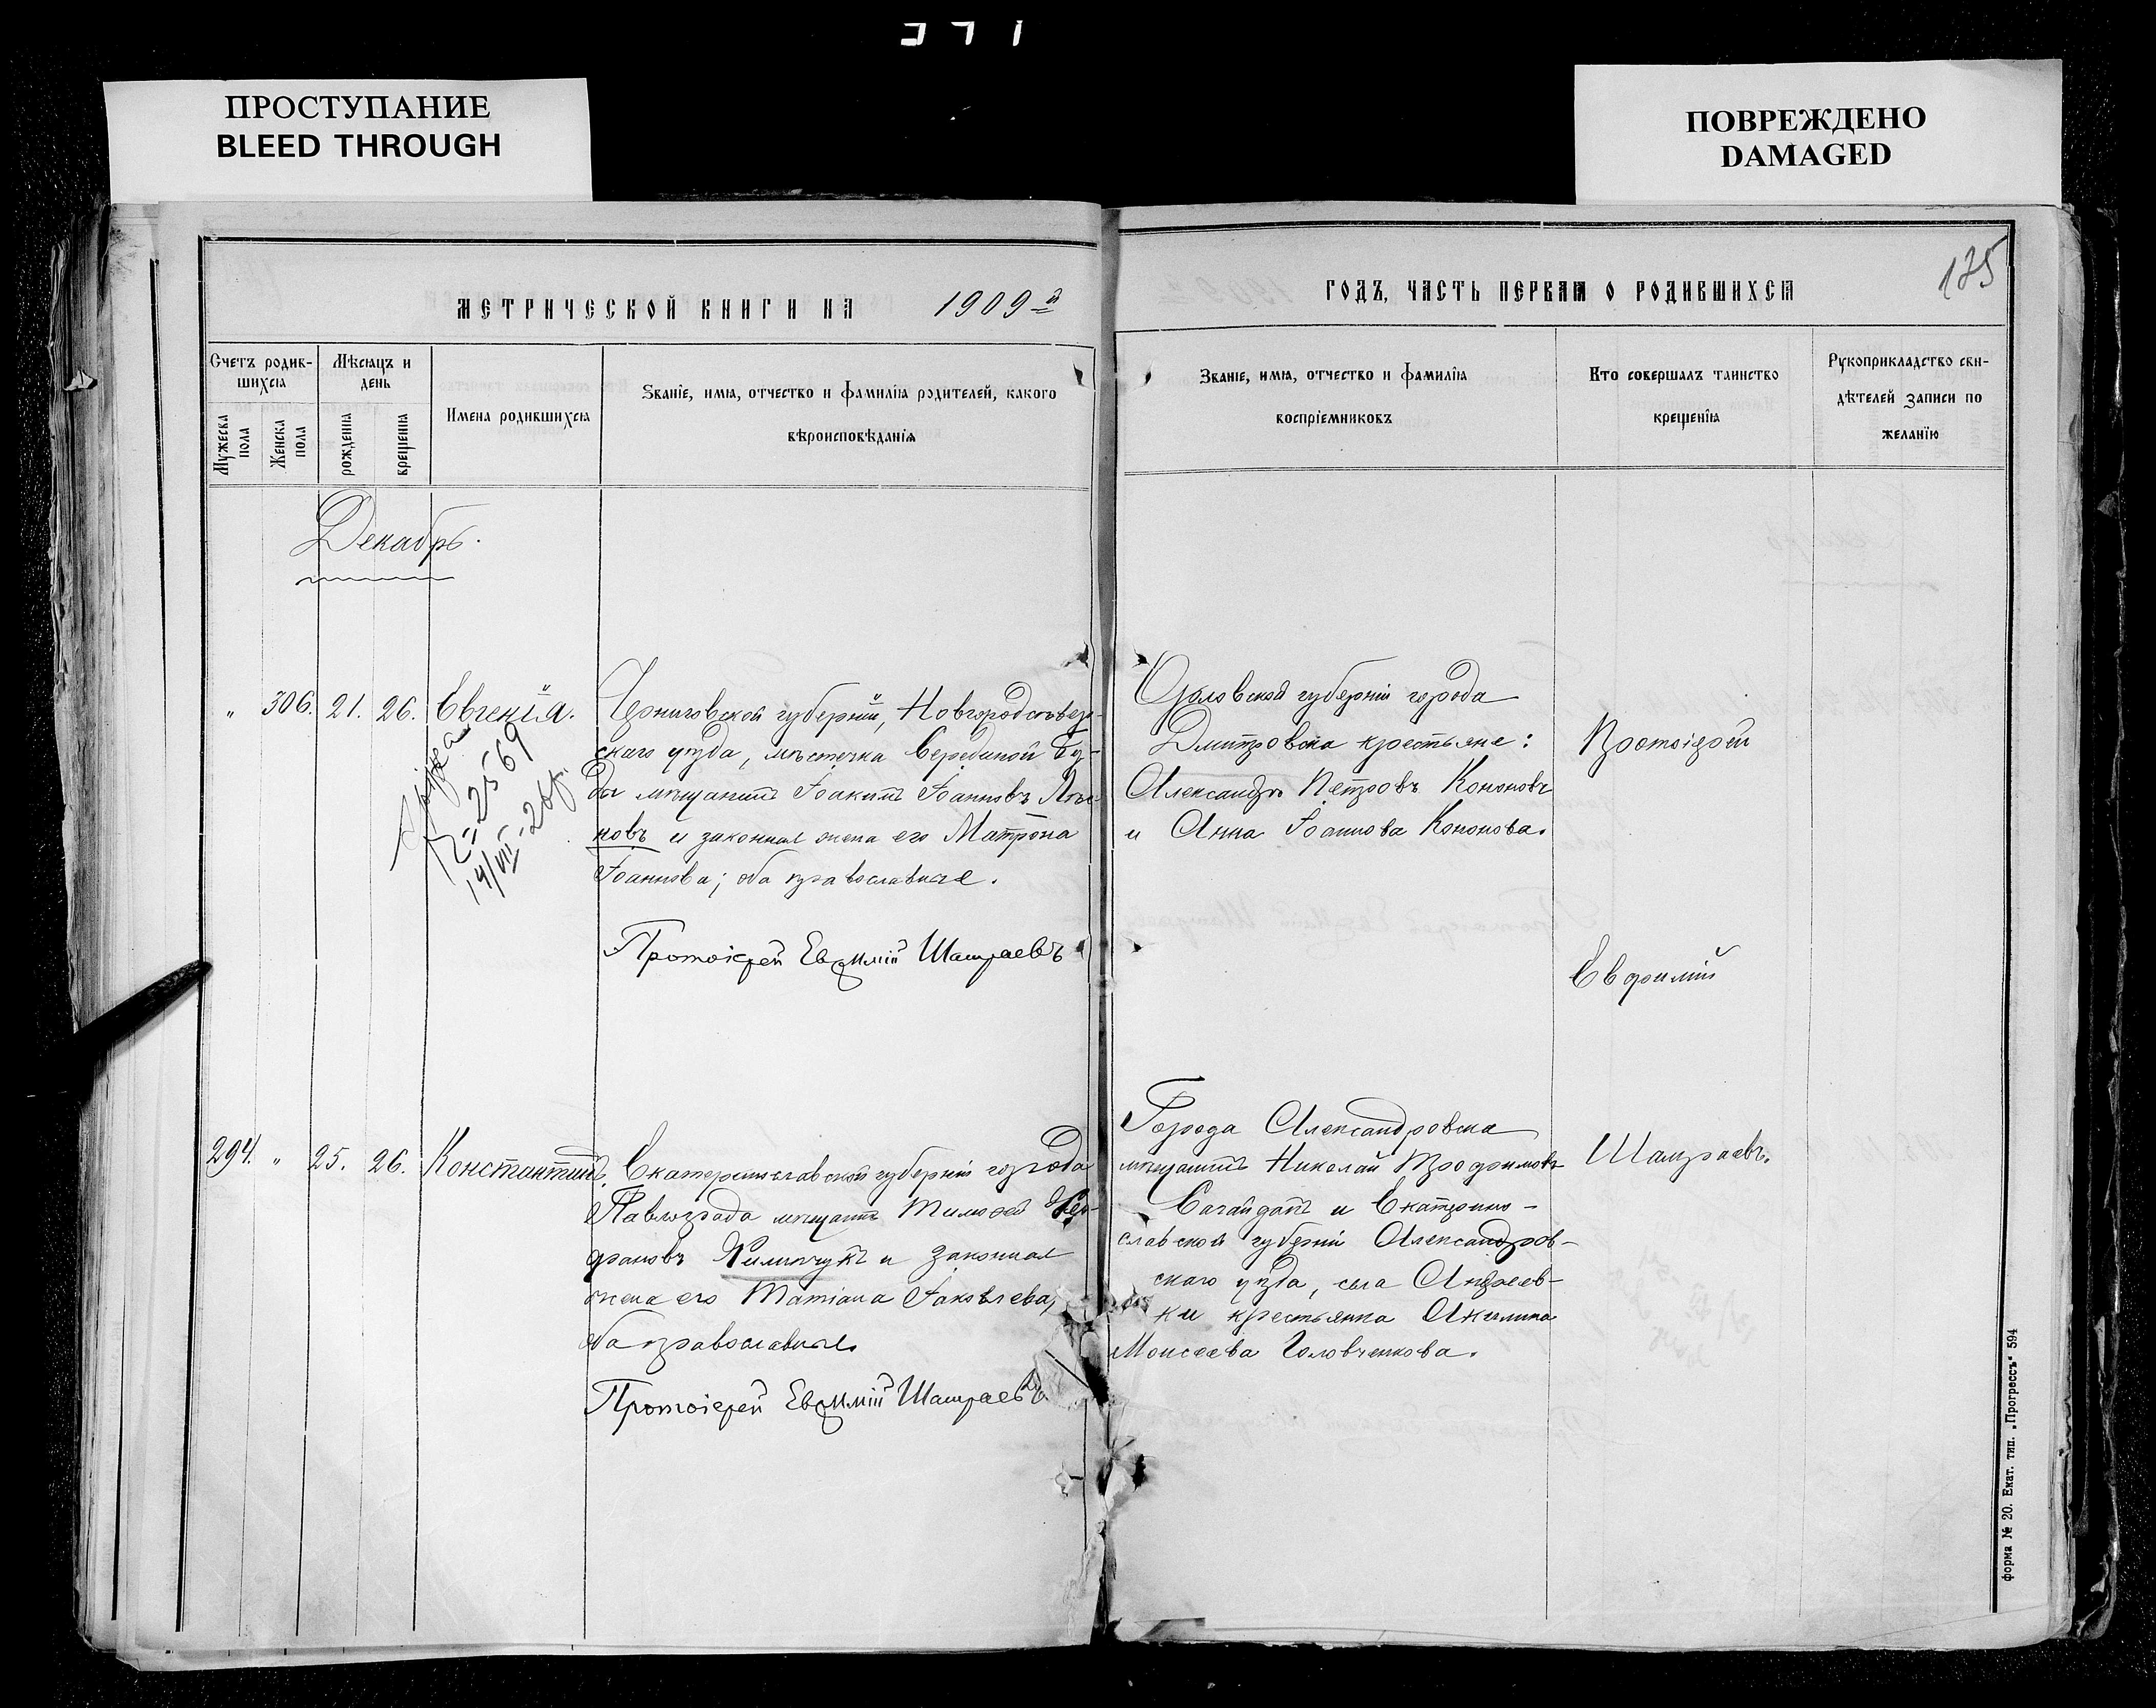 ПРОСТУПАНИЕ
BLEED THROUGH
ПОВРЕЖДЕНО
DAMAGED
175
МЕТРИЧЕСКОЙ КНИГИ НА 1909й
ГОДЪ, ЧАСТЬ ПЕРВАЯ О РОДИВШИХСЯ
Счетъ родив-
шихся
Мужеска пола
Женска пола
Мѣсяцъ и
день
рожденія
крещенія
Имена родившихся
Званіе, имя, отчество и фамилія родителей, какого
вѣроисповѣданія
Званіе, имя, отчество и фамилія
воспріемниковъ
Кто совершалъ таинство
крещенія
Рукоприкладство сви-
дѣтелей записи по
желанію
Декабрь.
" 306. 21. 26. Евгенія.
Черниговской губерніи, Новгородсѣвер-
скаго уѣзда, мѣстечка Середыной Бу-
ды мѣщанинъ Іоакимъ Іоанновъ
новъ и законная жена его Матрона
Іоаннова; оба православные.
Протоіерей Евѳимій Шамраевъ
2569
14/VII-26г.
Орловской губерніи города
Дмитровска крестьяне:
Александръ Петровъ Кононовъ
и Анна Іоаннова Кононова.
Протоіерей
Евфимій
Шамраевъ.
294. " 25. 26. Константинъ.
Екатеринославской губерніи города
Павлограда мѣщанинъ Тимоѳей
и законная
жена его Татіана Іаковлева,
оба православные.
Протоіерей Евѳимій Шамраевъ
Города Александровска
мѣщанинъ Николай Трофимовъ
Сагайдакъ и Екатрино-
славской губерніи Александров-
скаго уѣзда, села Андреев-
ки крестьянка Акилина
Моисеева Головченкова.
форма № 20. Екат. тип. „Прогрессъ" 594